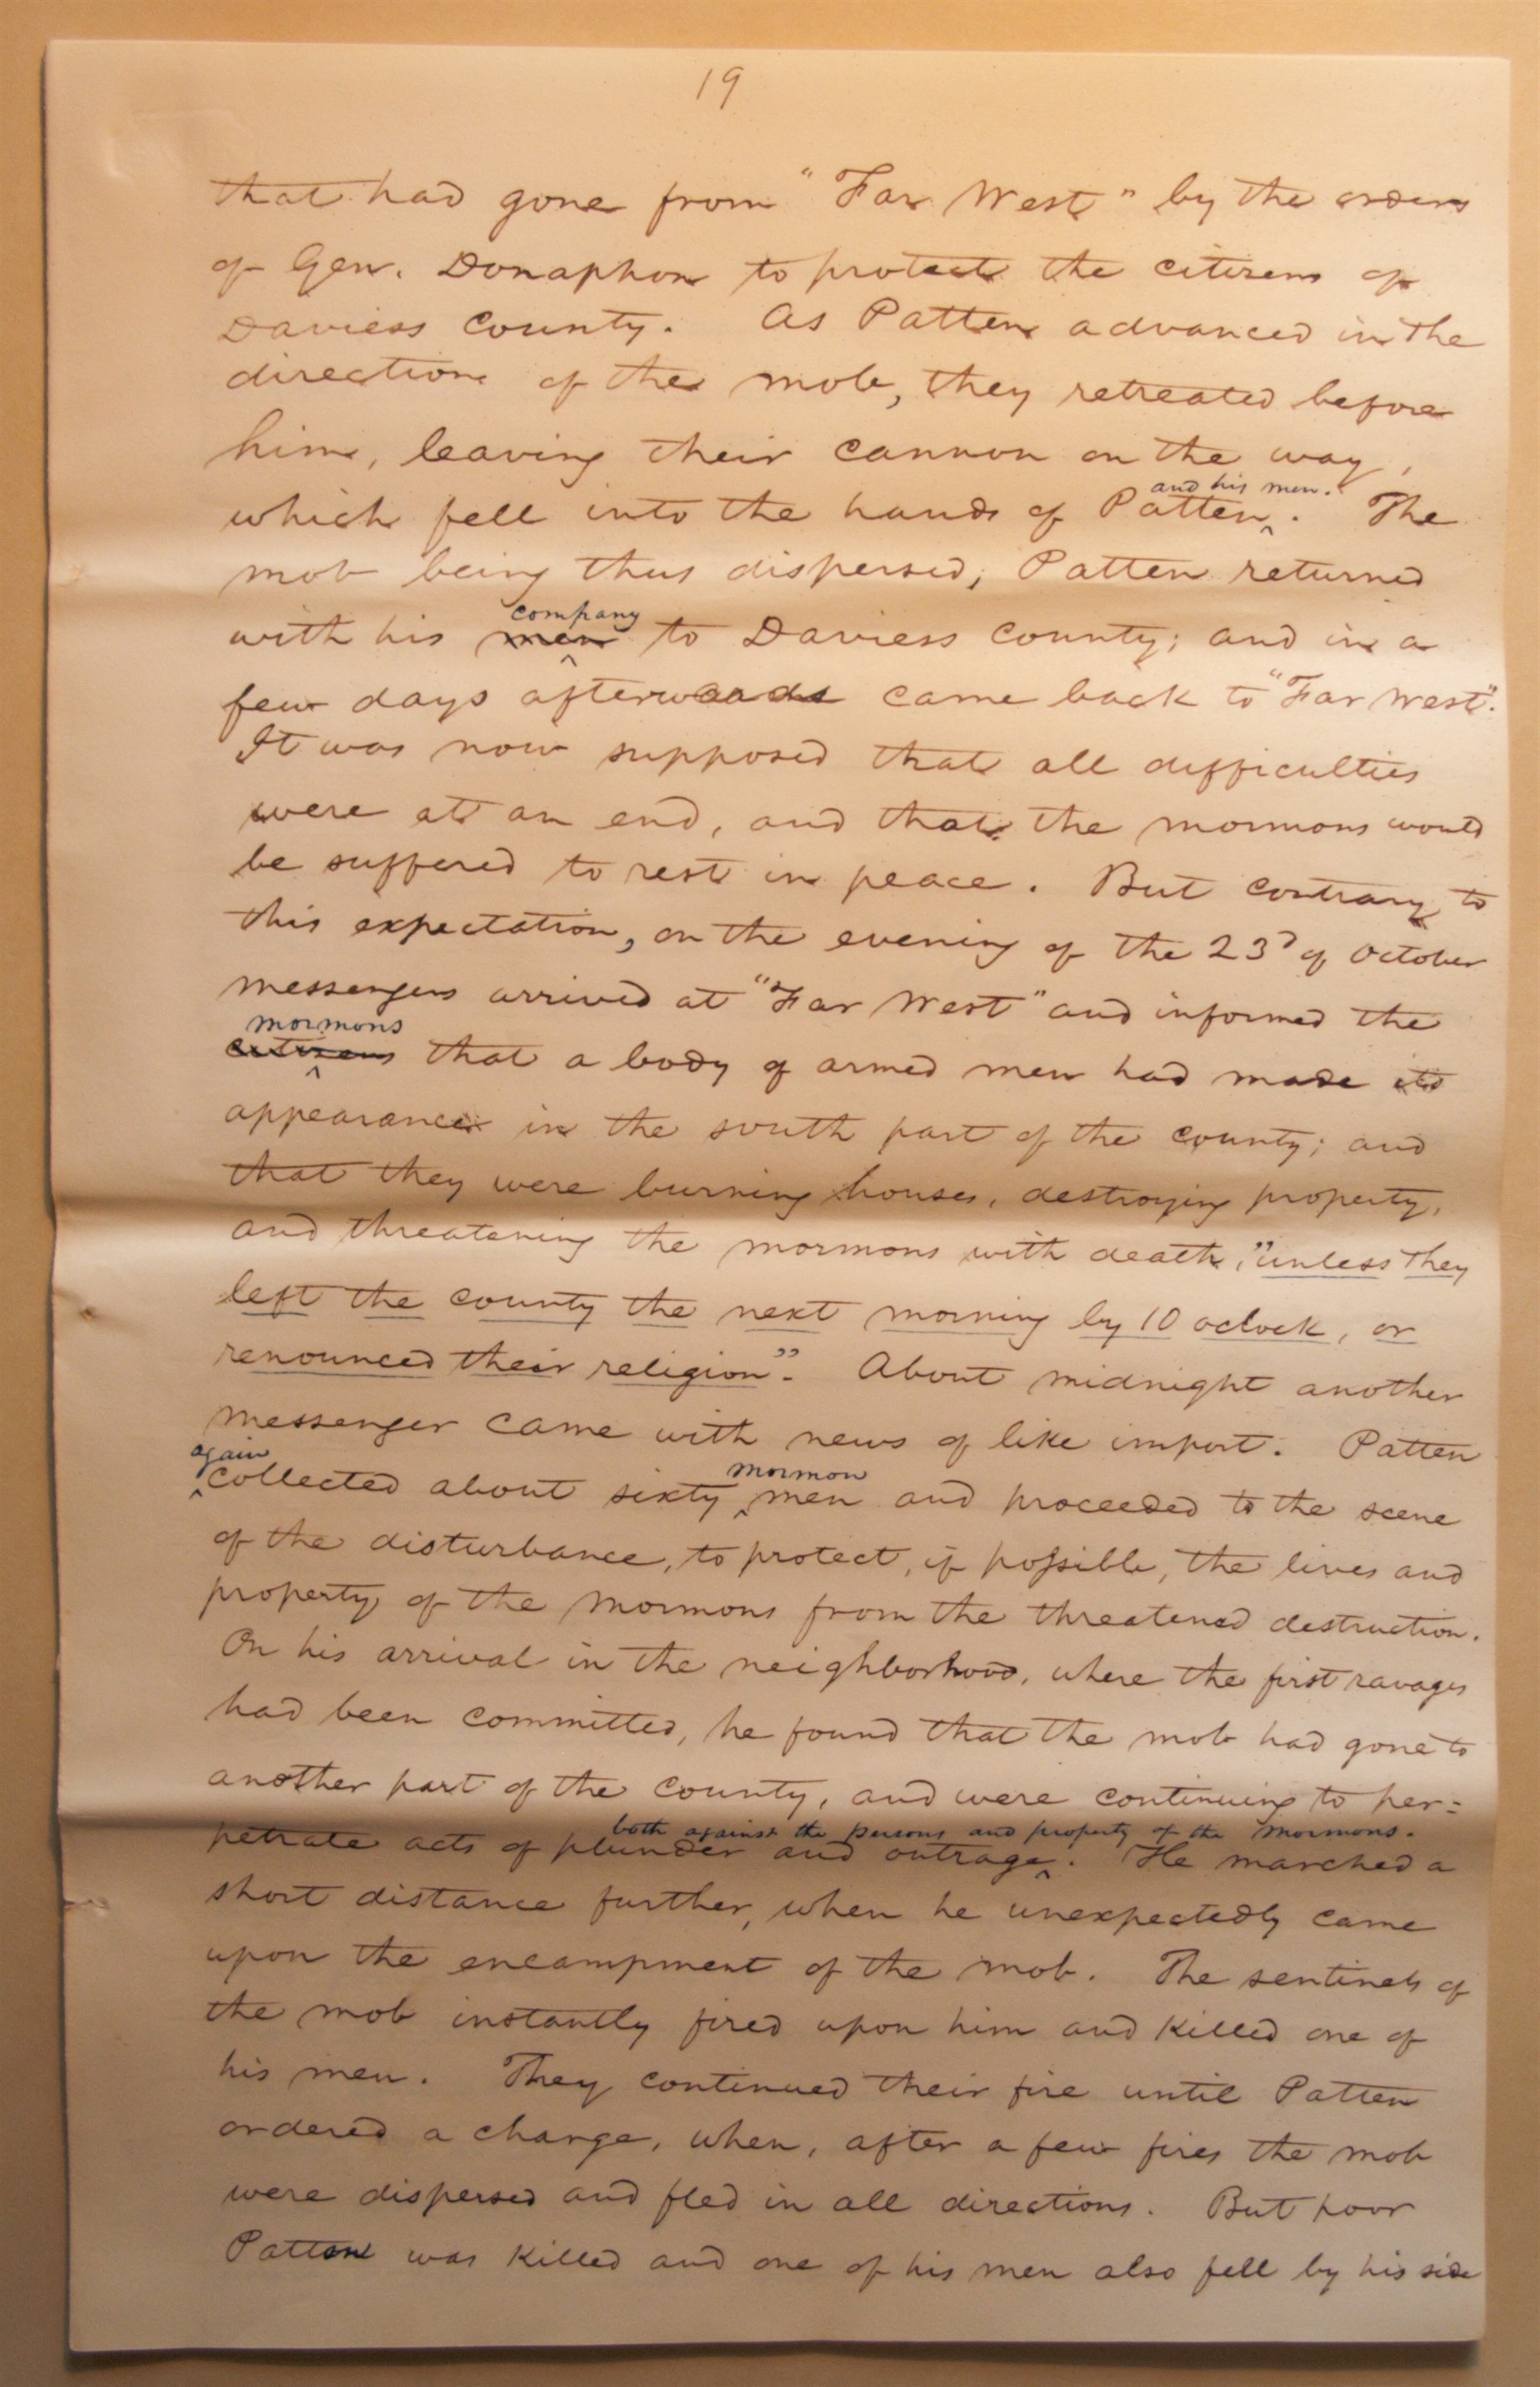 19
that had gone from "Far West" by the orders
of Gen. Donaphon to protect the citizens of
Daviess County. As Patten advanced in the
direction of the mob, they retreated before
him, leaving their cannon on the way,
and his men.
which fell into the hands of Patten‸. The
mob being thus dispersed, Patten returned
company
with his men‸ to Daviess County; and in a
few days afterwards came back to "Far West".
It was now supposed that all difficulties
were at an end, and that the mormons would
be suffered to rest in peace. But contrary to
this expectation, on the evening of the 23d of October
messengers arrived at "Far West" and informed the
mormons
citizens‸ that a body of armed men had made its
appearance in the south part of the county; and
that they were burning houses, destroying property,
and threatening the mormons with death, "unless they
left the county the next morning by 10 oclock, or
renounced their religion". About midnight another
messenger came with news of like import. Patten
again mormon
‸collected about sixty ‸men and proceeded to the scene
of the disturbance, to protect, if possible, the lives and
property of the Mormons from the threatened destruction.
On his arrival in the neighborhood, where the first ravages
had been committed, he found that the mob had gone to
another part of the county, and were continuing to per=
both against the persons and property of the mormons.
petrate acts of plunder and outrage‸. He marched a
short distance further, when he unexpectedly came
upon the encampment of the mob. The sentinels of
the mob instantly fired upon him and killed one of
his men. They continued their fire until Patten
ordered a charge, when, after a few fires the mob
were dispersed and fled in all directions. But poor
Patten was killed and one of his men also fell by his side